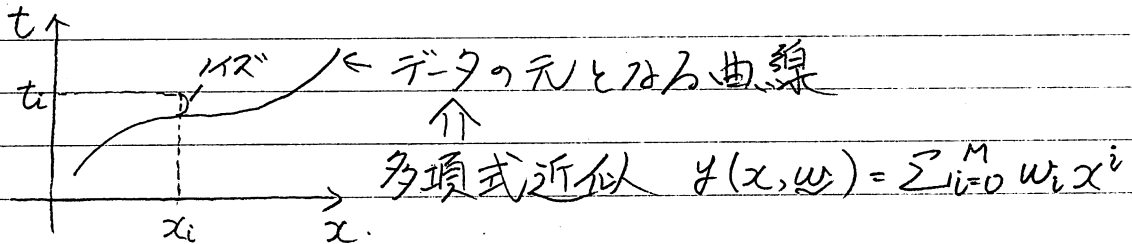 t
ノイズ
ti ← データの元となる曲線
⇑
多項式近似 y(x,w) = Σ_{i=0}^{M} w_i x^i
xi x.